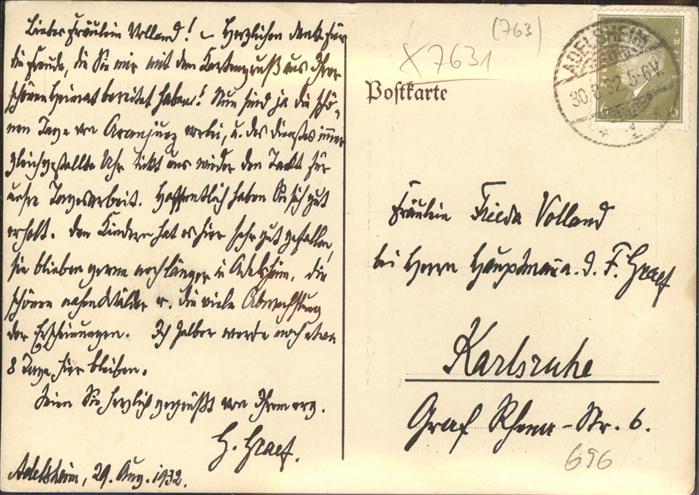 Liebes Fräulein Volland! – Herzlichen Dank für
die Freude, die Sie mir mit dem Kartengruß aus Ihrer
schönen Heimat bereitet haben! Nun sind ja die schö-
nen Tage von Aranjuez vorbei, u. des Dienstes immer
gleichgestellte Uhr tickt uns wieder den Takt für
unsre Tagesarbeit. Hoffentlich haben Sie sich gut
erholt. Den Kindern hat es hier sehr gut gefallen,
sie blieben gerne noch länger in Adelsheim. Die
schönen nahen Wälder u. die viele Abwechslung
der Erscheinungen. Ich selber werde noch etwa
8 Tage hier bleiben.
Seien Sie herzlich gegrüßt von Ihrem erg.
H. Graef.
Adelsheim, 29. Aug. 1932.
(763)
X7631
Postkarte
ADELSHEIM
30.8.32. 5-6V.
Fräulein Frieda Volland
bei Herrn Hauptmann a. d. F. Graef
Karlsruhe
Graf Rhena-Str. 6.
696